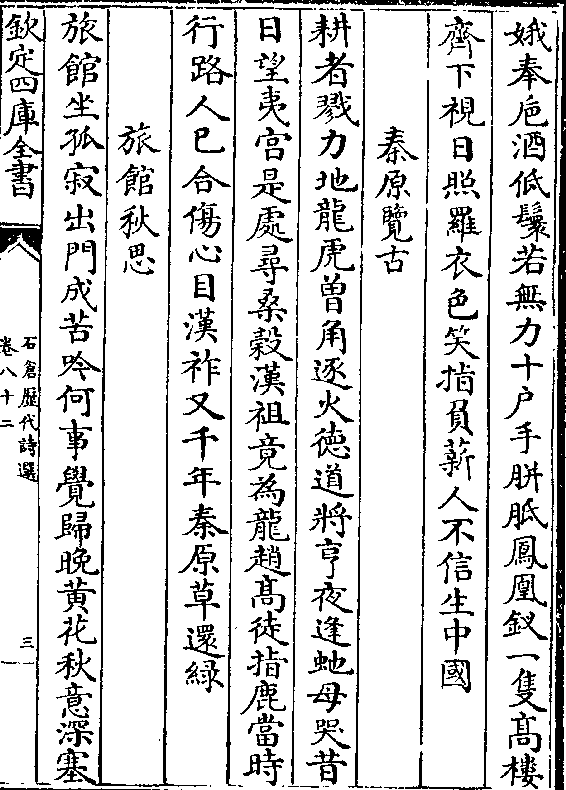 娥奉巵酒低鬟若無力十户手胼胝鳳凰釵一隻髙樓
齊下視日照羅衣色笑指負薪人不信生中國
秦原覽古
耕者戮力地龍虎曽角逐火徳道將亨夜逢虵母哭昔
日望夷宫是處尋桑榖漢祖竟為龍趙髙徒指鹿當時
行路人已合傷心目漢祚又千年秦原草還緑
旅館秋思
旅館坐孤寂出門成苦吟何事覺歸晚黄花秋意深塞
欽定四庫全書
石倉歴代詩選
卷八十二
三